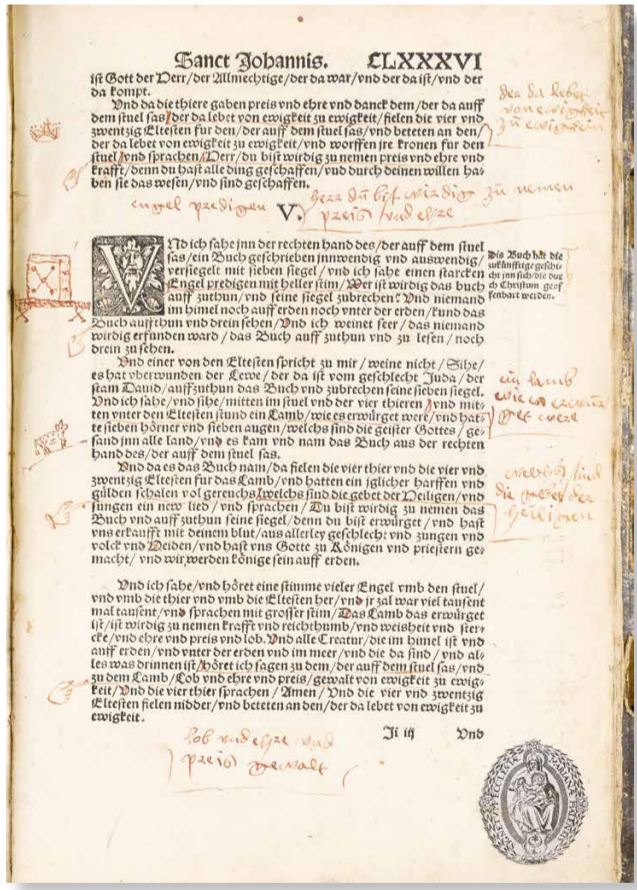 Sanct Johannis. CLXXXVI
ist Gott der Herr/der Allmechtige/der da war/vnd der da ist/vnd der
da kompt.
Vnd da die thiere gaben preis vnd ehre vnd danck dem/der da auff
dem stuel sas/der da lebet von ewigkeit zu ewigkeit/fielen die vier vnd
zwentzig Eltesten fur den/der auff dem stuel sas/vnd beteten an den/
der da lebet von ewigkeit zu ewigkeit/vnd worffen jre kronen fur den
stuel/vnd sprachen/Herr/du bist wirdig zu nemen preis vnd ehre vnd
krafft/denn du hast alle ding geschaffen/vnd durch deinen willen ha-
ben sie das wesen/vnd sind geschaffen.
der da lebet
von ewigkeit
zu ewigkeit
engel predigen
herr du bist wirdig zu nemen
preis vnd ehre
V.
VNd ich sahe jnn der rechten hand des/der auff dem stuel
sas/ein Buch geschrieben jnnwendig vnd auswendig/
versiegelt mit sieben siegel/vnd ich sahe einen starcken
Engel predigen mit heller stim/Wer ist wirdig das buch
auff zuthun/vnd seine siegel zubrechen? Vnd niemand
im himel noch auff erden noch vnter der erden/kund das
Buch auffthun vnd drein sehen/Vnd ich weinet seer/das niemand
wirdig erfunden ward/das Buch auff zuthun vnd zu lesen/noch
drein zu sehen.
Dis Buch hat die
geschi-
cht jnn sich/die dur
ch Christum geof
fenbart werden.
Vnd einer von den Eltesten spricht zu mir/weine nicht/Sihe/
es hat vberwunden der Lewe/der da ist vom geschlecht Juda/der
stam Dauid/auffzuthun das Buch vnd zubrechen seine sieben siegel.
Vnd ich sahe/vnd sihe/mitten im stuel vnd der vier thieren/vnd mit-
ten vnter den Eltesten stund ein Lamb/wie es erwürget were/vnd hat-
te sieben hörner vnd sieben augen/welchs sind die geister Gottes/ge-
sand jnn alle land/vnd es kam vnd nam das Buch aus der rechten
hand des/der auff dem stuel sas.
ein lamb
wie es erwur
get were
Vnd da es das Buch nam/da fielen die vier thier vnd die vier vnd
zwentzig Eltesten für das Lamb/vnd hatten ein jglicher harffen vnd
gülden schalen vol gereuchs/welchs sind die gebet der Heiligen/vnd
sungen ein new lied/vnd sprachen/Du bist wirdig zu nemen das
Buch vnd auff zuthun seine siegel/denn du bist erwürget/vnd hast
vns erkaufft mit deinem blut/aus allerley geschlecht vnd zungen vnd
volck vnd Heiden/vnd hast vns Gotte zu Königen vnd priestern ge-
macht/vnd wir werden könige sein auff erden.
welchs sind
die gebet der
heiligen
Vnd ich sahe/vnd höret eine stimme vieler Engel vmb den stuel/
vnd vmb die thier vnd vmb die Eltesten her/vnd jr zal war viel tausent
mal tausent/vnd sprachen mit grosser stim/Das Lamb das erwürget
ist/ist wirdig zu nemen krafft vnd reichthumb/vnd weisheit vnd ster-
cke/vnd ehre vnd preis vnd lob. Vnd alle Creatur/die im himel ist vnd
auff erden/vnd vnter der erden vnd im meer/vnd die da sind/vnd al-
les was drinnen ist/höret ich sagen zu dem/der auff dem stuel sas/vnd
zu dem Lamb/Lob vnd ehre vnd preis/gewalt von ewigkeit zu ewig-
keit/Vnd die vier thier sprachen/Amen/Vnd die vier vnd zwentzig
Eltesten fielen nidder/vnd beteten an den/der da lebet von ewigkeit zu
ewigkeit.
Ji iij Vnd
lob vnd ehre vnd
preis gewalt